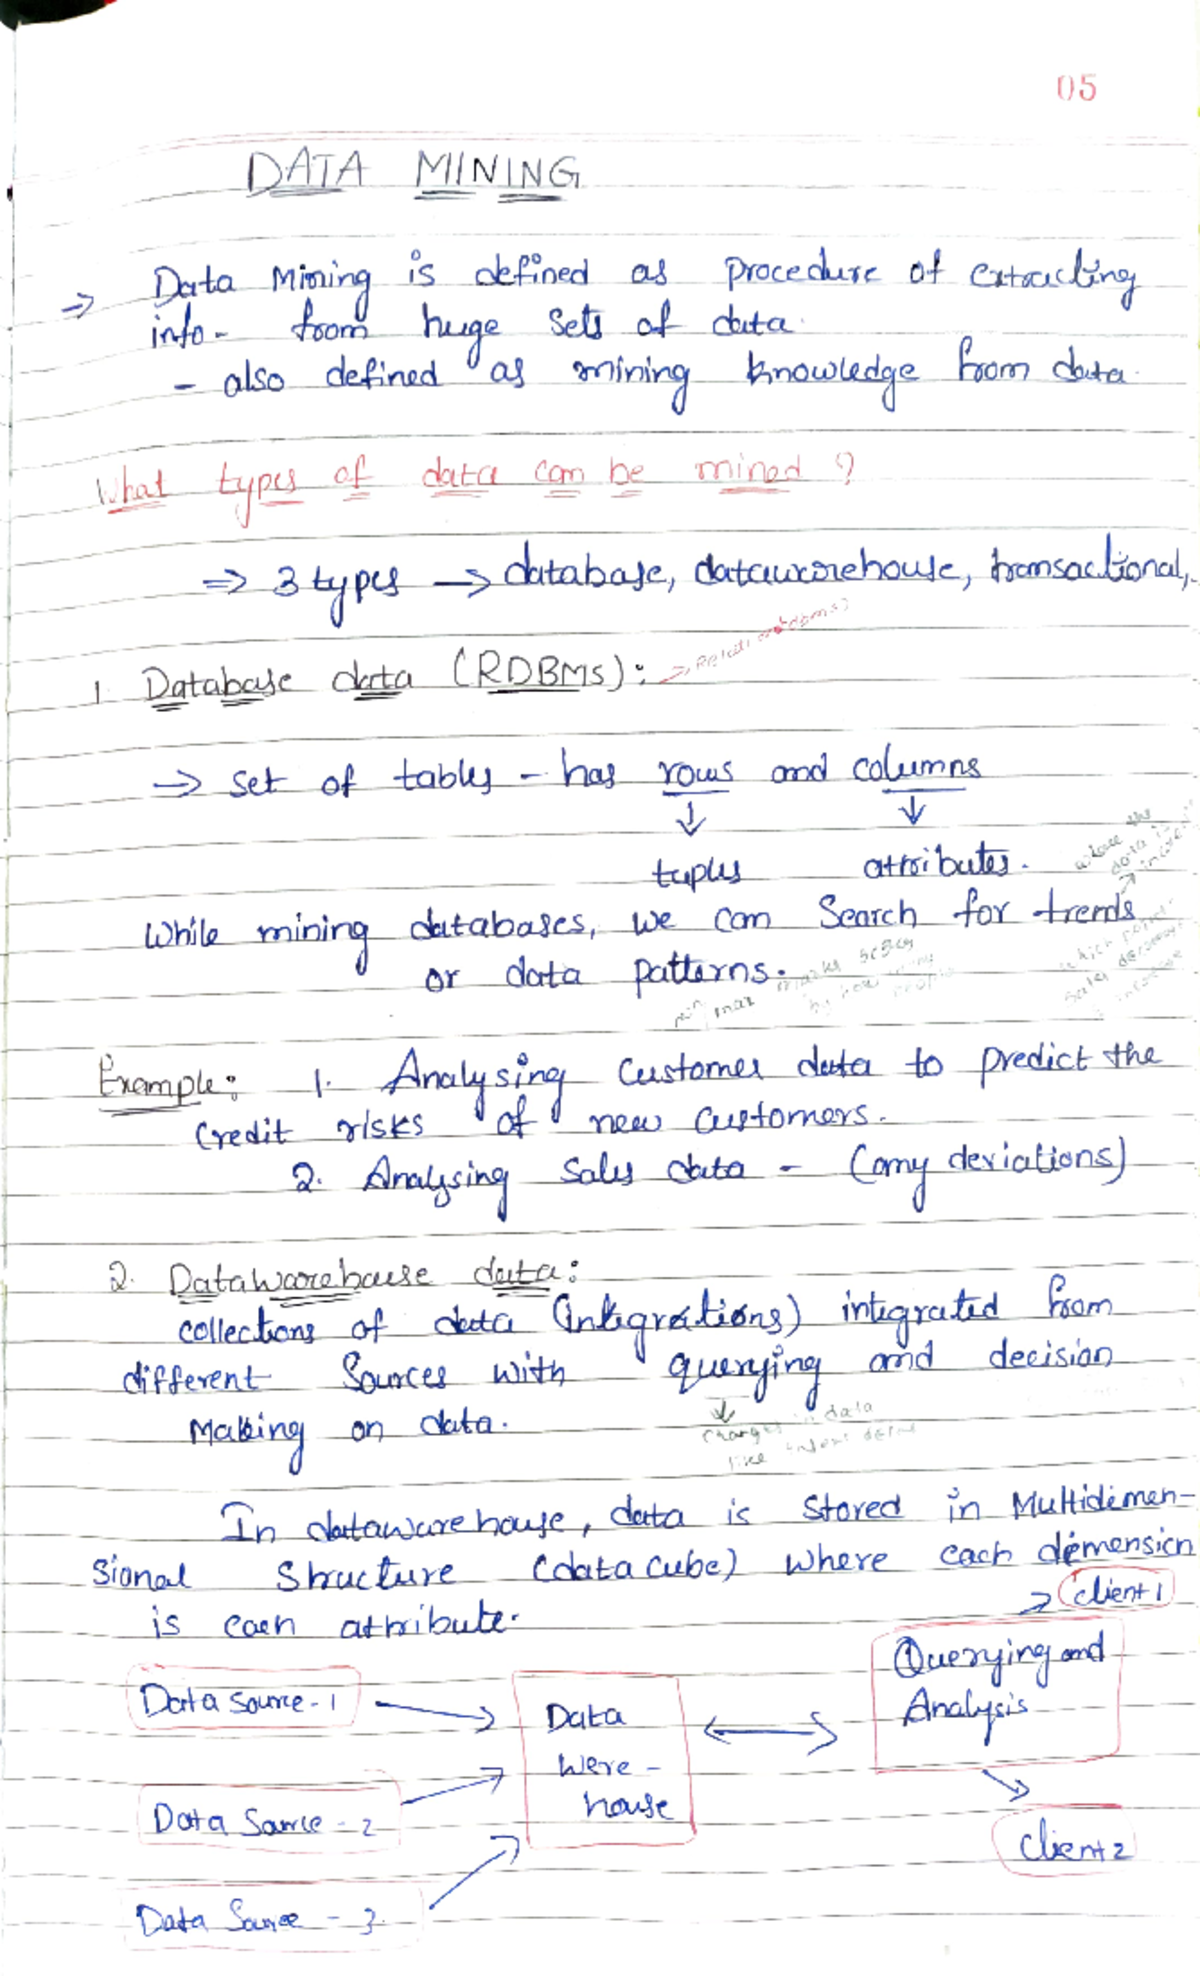 05
DATA MINING
⇒ Data Mining is defined as procedure of extracting
info- from huge sets of data.
- also defined as mining knowledge from data.
What types of data can be mined ?
⇒ 3 types → database, datawarehouse, transactional,
→ Relational dbms)
1. Database data (RDBMS):
→ set of tables - has rows and columns
↓ ↓
tuples attributes.
where the
data is
While mining databases, we can search for trends
or data patterns.
min max marks
Example: 1. Analysing customer data to predict the
credit risks of new customers.
2. Analysing sales data - (any deviations)
2. Datawarehouse data:
collections of data (integrations) integrated from
different sources with querying and decision
Making on data.
↓
changes in data
like
In datawarehouse, data is stored in Multidimen-
sional structure (data cube) where each dimension
is each attribute.
→ client 1
Querying and
Analysis
Data source - 1
Data
were -
house
Data source - 2
client 2
Data source - 3